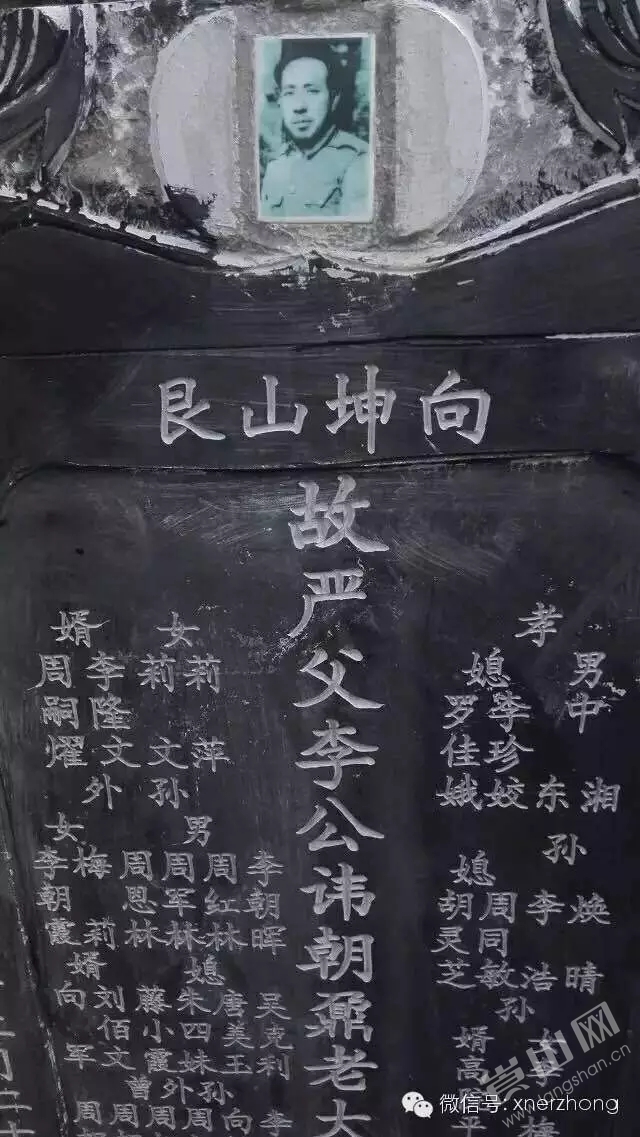 艮山坤向
故严父李公讳朝鼐老大
孝
男
中
湘
东
媳
李珍姣
罗佳娥
孙
焕
晴
李
浩
媳
周同敏
胡灵芝
孙
女
梅
婿
高
平
女
莉萍
莉文
婿
李隆文
周嗣耀
外孙
男
李朝晖
周红林
周军林
周恩林
媳
吴克利
唐美玉
朱四妹
藤小霞
女
梅莉
李朝霞
婿
刘佰文
向军
曾外孙
李
向
周
周
周
微信号: xnerzhong